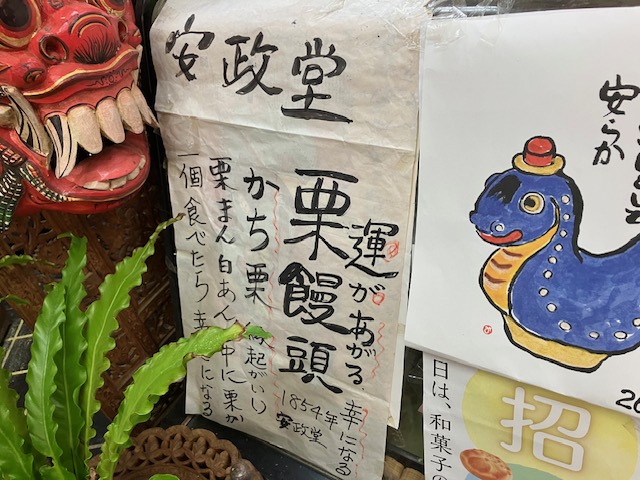 安政堂
運があがる
幸になる
栗饅頭
1854年
安政堂
かち栗
縁起がいい
栗まん白あん中に栗が
一個食べたら幸になる
安らか
招
日は、和菓子の